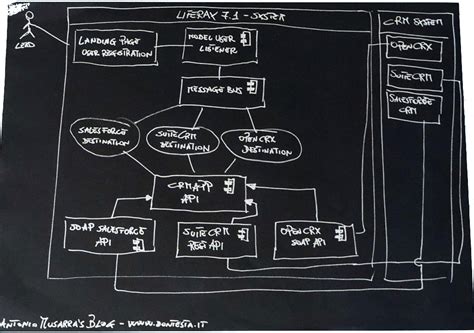 LIFERAY 7.1 - SYSTEM
CRM SYSTEM
LEAD
LANDING PAGE
USER REGISTRATION
MODEL USER
LISTENER
OPENCRX
SUITECRM
SALESFORCE
CRM
MESSAGE BUS
SALESFORCE
DESTINATION
SUITECRM
DESTINATION
OPENCRX
DESTINATION
CRMAPP
API
SOAP SALESFORCE
API
SUITECRM
REST API
OPENCRX
SOAP API
ANTONIO MUSARRA'S BLOG - WWW.DONTESTA.IT